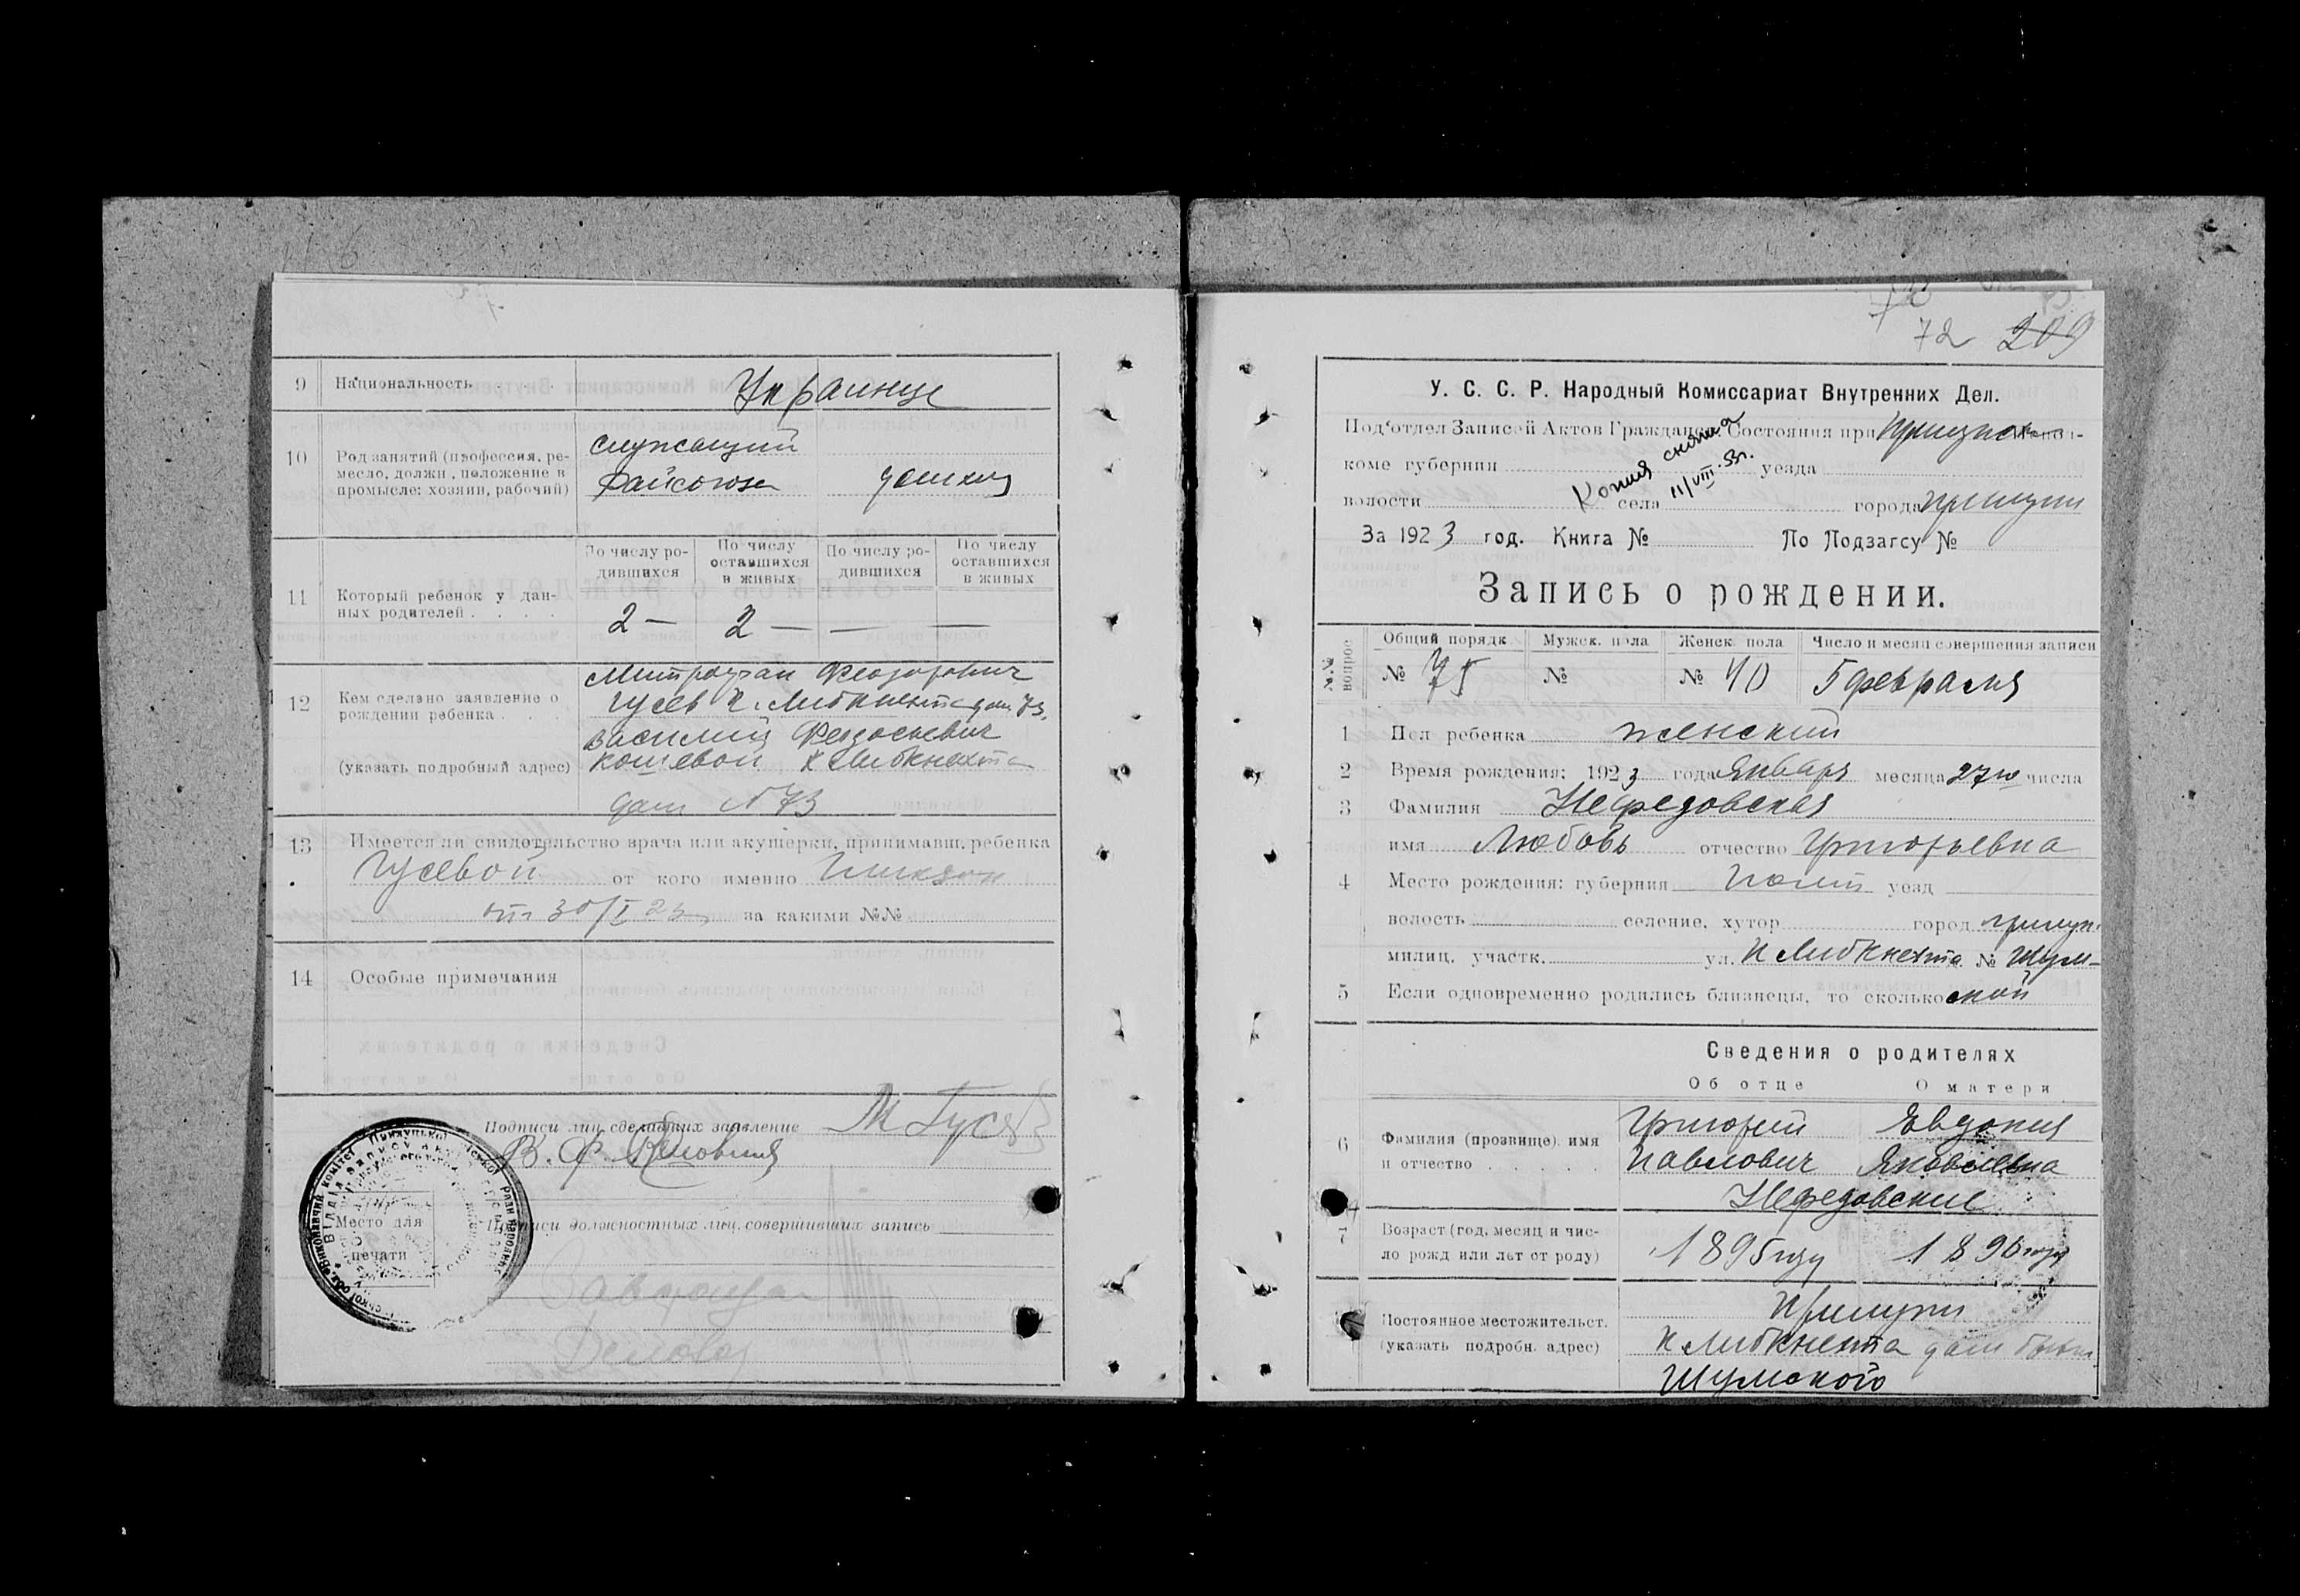 9 Национальность . . . . Украинцы
10 Род занятий (профессия, ре-
месло, должн, положение в
промысле: хозяин, рабочий)
служащий
Райсоюза
домхоз
11 Который ребенок у дан-
ных родителей . . . .
По числу ро-
дившихся
По числу
оставшихся
в живых
По числу ро-
дившихся
По числу
оставшихся
в живых
2 — 2 — — —
12 Кем сделано заявление о
рождении ребенка . . .
(указать подробный адрес)
Митрофан Феодорович
Гусев К. Либкнехта дом 73.
Василий Федосиевич
Кошевой К Либкнехта
дом №73
13 Имеется ли свидетельство врача или акушерки, принимавш. ребенка
Гусевой от кого именно
от 30/I 23 за какими №№
14 Особые примечания
Подписи лиц сделавших заявление М Гусев
В. Ф.
Подписи должностных лиц, совершивших запись
Место для
печати
72 209
У. С. С. Р. Народный Комиссариат Внутренних Дел.
Под'отдел Записей Актов Гражданск. Состояния при
коме губернии уезда
волости села города Прилуки
Копия снята
11/VIII.53г.
За 1923 год. Книга № По Подзагсу №
Запись о рождении.
№№ вопрос
Общий порядк Мужск. пола Женск. пола Число и месяц совершения записи
№ 75 № № 40 5 февраля
1 Пол ребенка женский
2 Время рождения: 1923 года Января месяца 27го числа
3 Фамилия Нефедовская
имя Любовь отчество Григорьевна
4 Место рождения: губерния Полт уезд
волость селение, хутор город Прилук.
милиц. участк. ул. К Либкнехта № Шум-
5 Если одновременно родились близнецы, то сколько ской
Сведения о родителях
Об отце О матери
6 Фамилия (прозвище) имя
и отчество . . . . .
Григорий Евдокия
Павлович Яковлевна
Нефедовские
7 Возраст (год, месяц и чис-
ло рожд или лет от роду)
1895 году 1896 году
Постоянное местожительст.
(указать подробн. адрес)
Прилуки
К Либкнехта дом бывш
Шумского